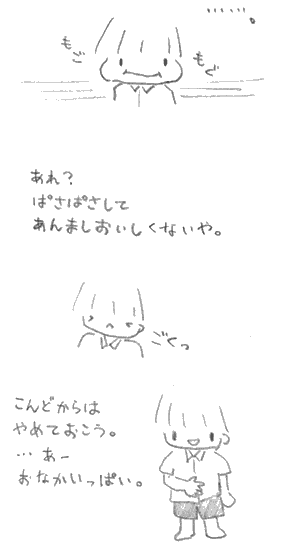 もご
もぐ
あれ？
ぱさぱさして
あんましおいしくないや。
ごくっ
こんどからは
やめておこう。
…あー
おなかいっぱい。